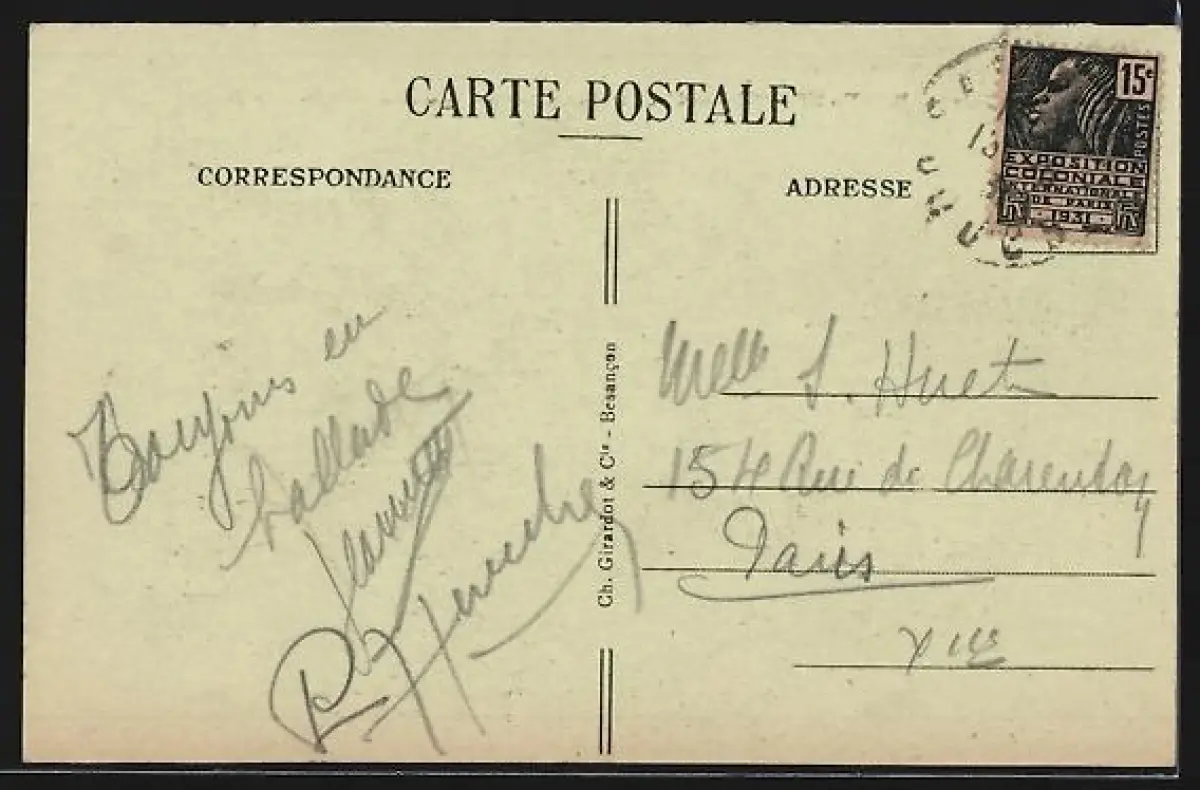 CARTE POSTALE
CORRESPONDANCE
ADRESSE
15c
POSTES
EXPOSITION
COLONIALE
INTERNATIONALE
DE PARIS
1931
Toujours en
ballade
Jeannette
R
Ch. Girardot & Cie - Besançon
Melle S. Huet
154 Rue de Charenton
Paris
XIIe